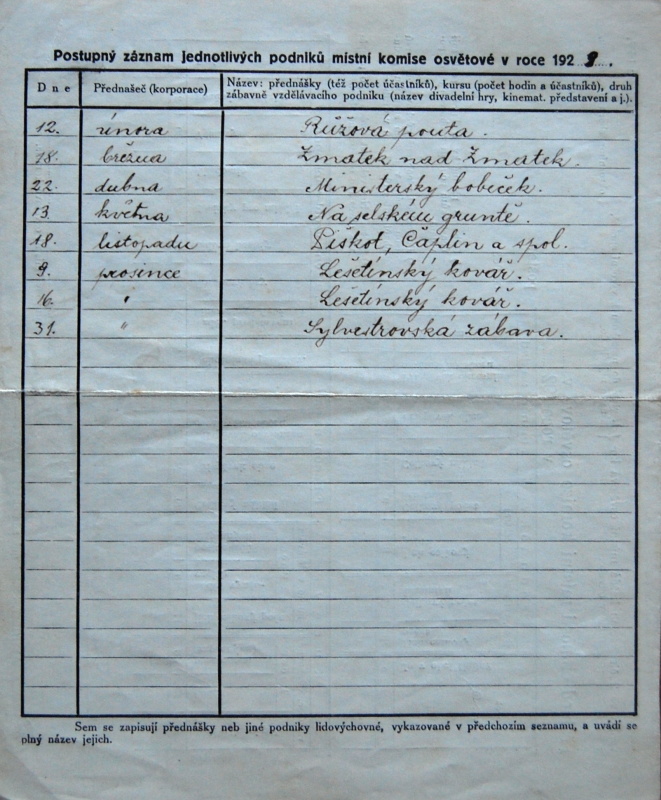 Postupný záznam jednotlivých podniků místní komise osvětové v roce 1929.
Dne
Přednašeč (korporace)
Název: přednášky (též počet účastníků), kursu (počet hodin a účastníků), druh
zábavně vzdělávacího podniku (název divadelní hry, kinemat. představení a j.).
12. února Růžová pouta.
18. března Zmatek nad Zmatek.
22. dubna Ministerský bobeček.
13. května Na selském gruntě.
18. listopadu Piškot, Čáplin a spol.
9. prosince Lešetínský kovář.
16. " Lešetínský kovář.
31. " Sylvestrovská zábava.
Sem se zapisují přednášky neb jiné podniky lidovýchovné, vykazované v předchozím seznamu, a uvádí se
plný název jejich.